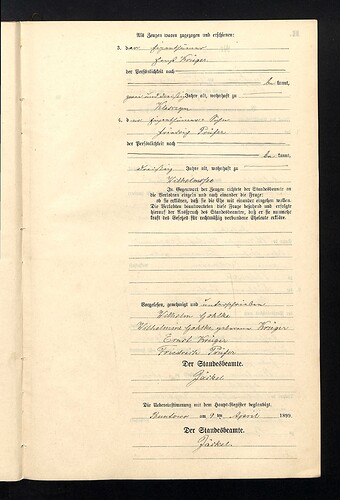 Als Zeugen waren zugezogen und erschienen:
3. der Eigenthümer
Krüger
der Persönlichkeit nach
be kannt,
zwei und dreißig Jahre alt, wohnhaft zu
4. der Eigenthümer Sohn
Friedrich Prüfer
der Persönlichkeit nach
be kannt,
dreißig Jahre alt, wohnhaft zu
In Gegenwart der Zeugen richtete der Standesbeamte an
die Verlobten einzeln und nach einander die Frage:
ob sie erklären, daß sie die Ehe mit einander eingehen wollen.
Die Verlobten beantworteten diese Frage bejahend und erfolgte
hierauf der Ausspruch des Standesbeamten, daß er sie nunmehr
kraft des Gesetzes für rechtmäßig verbundene Eheleute erkläre.
Vorgelesen, genehmigt und unterschrieben
Wilhelm Gohlke
Wilhelmine Gohlke geborene Krüger
Ernst Krüger
Friedrich Prüfer
Der Standesbeamte.
Jäckel
Die Uebereinstimmung mit dem Haupt-Register beglaubigt.
am 9 ten April 189
Der Standesbeamte.
Jäckel.